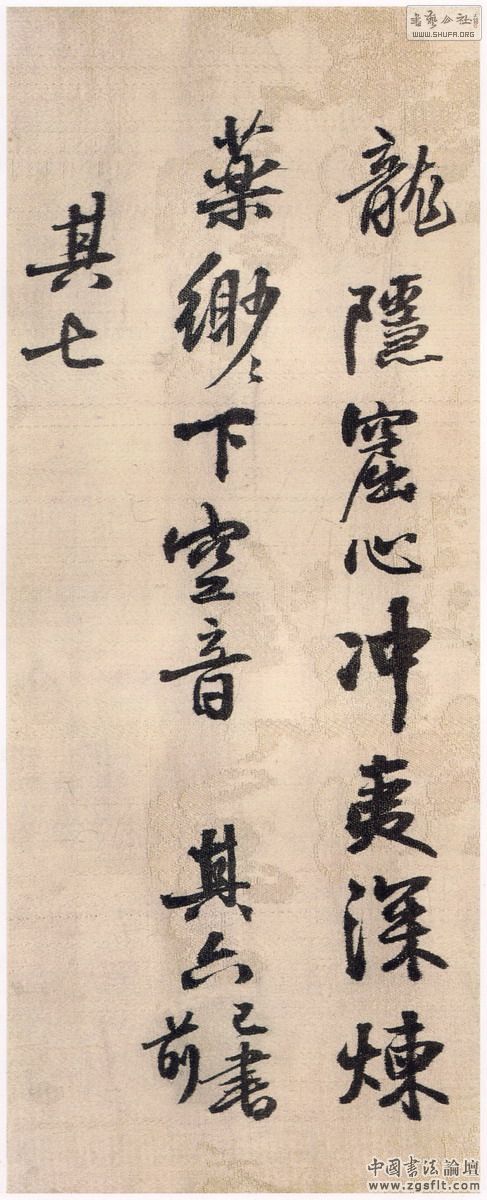 龍隱窟心冲夷深煉
藥缈〻下空音 其六已書前
其七
書藝公社
WWW.SHUFA.ORG
中國書法論壇
www.zgsflt.com